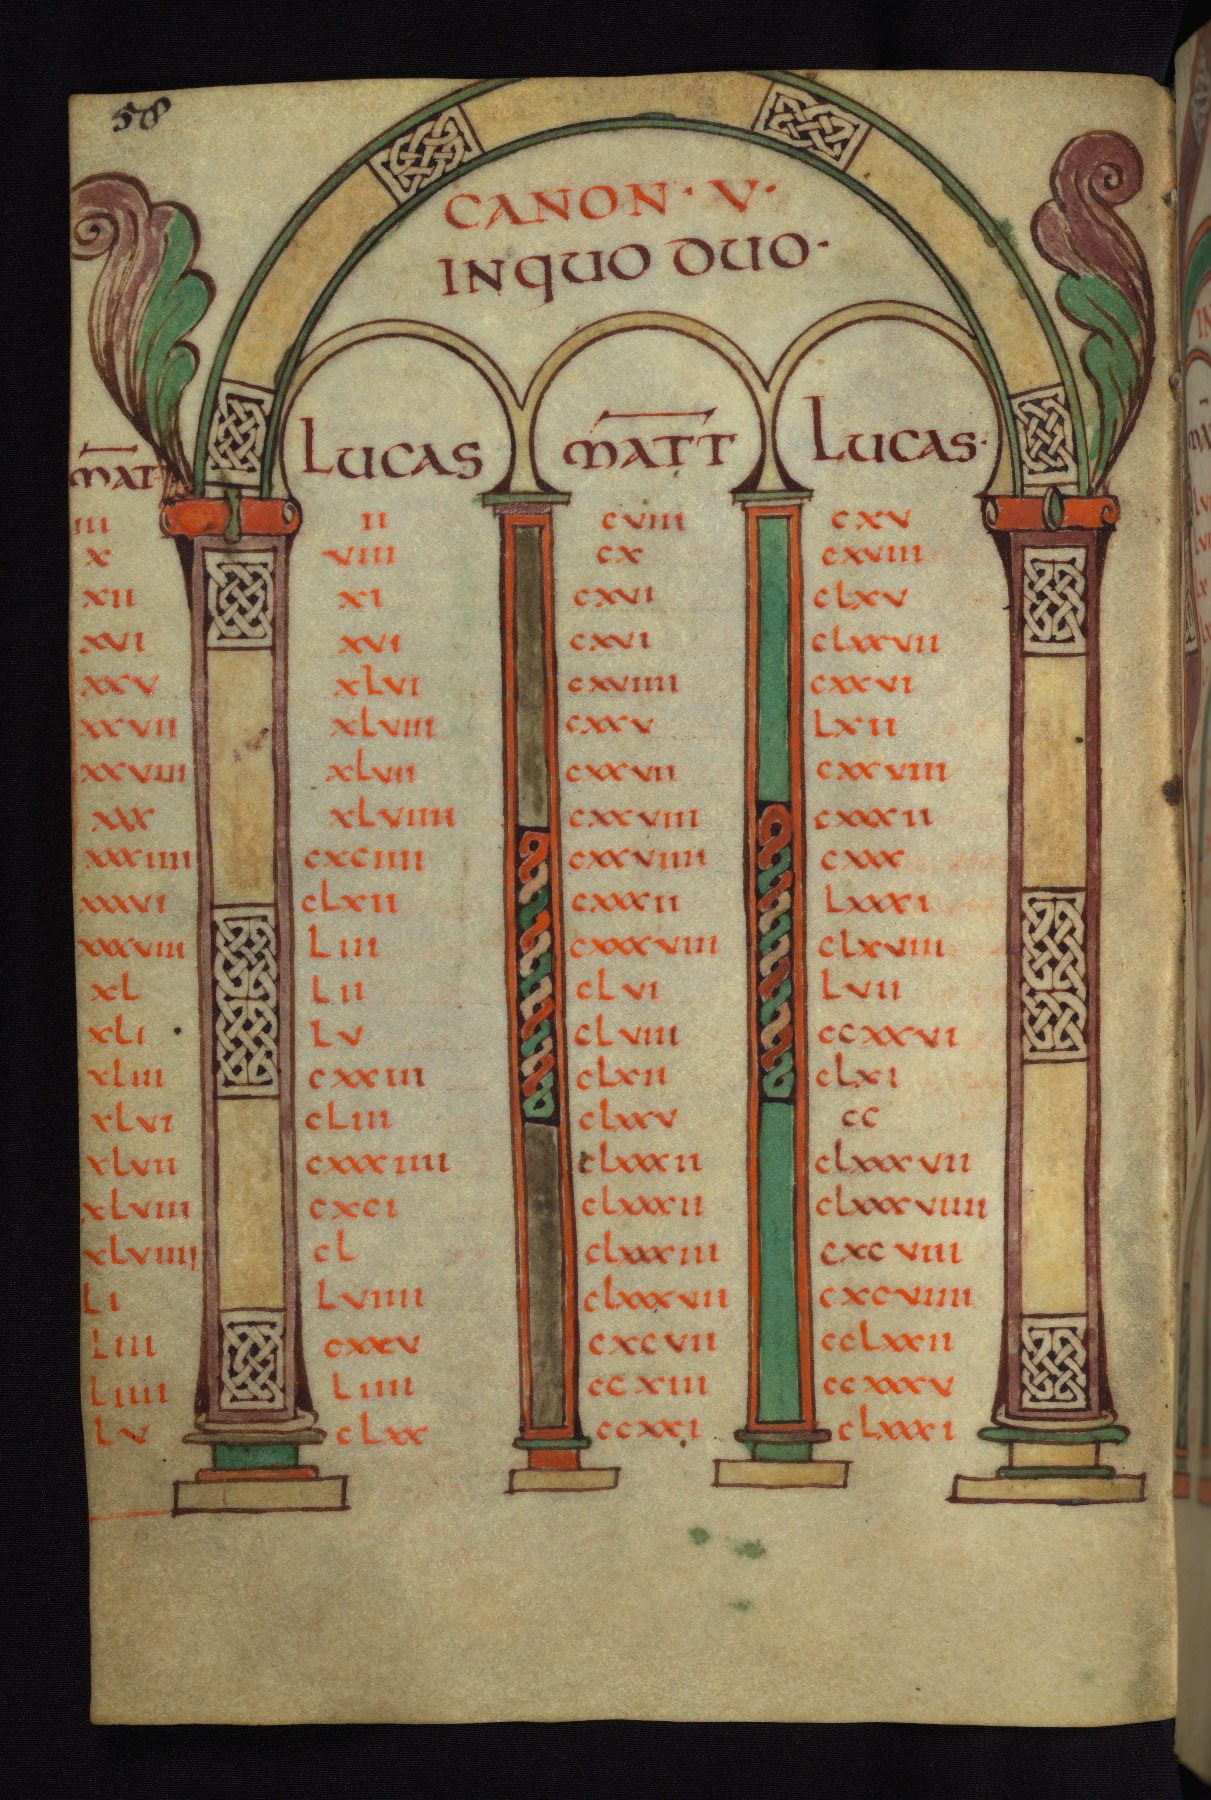 58
CANON · V ·
INQUO DUO ·
MAT LUCAS MATT LUCAS ·
III II CVIII CXV
X VIII CX CXVIII
XII XI CXVI CLXV
XVI XVI CXVI CLXXVII
XXV XLVI CXVIIII CXXVI
XXVII XLVIII CXXV LXII
XXVIIII XLVII CXXVII CXXVIII
XXX XLVIIII CXXVIII CXXXII
XXXIIII CXCIIII CXXVIIII CXXX
XXXVI CLXII CXXXII LXXXI
XXXVIII LIII CXXXVIII CLXVIII
XL LII CLVI LVII
XLI LV CLVIII CCXXVI
XLIII CXXIII CLXII CLXI
XLVI CLIII CLXXV CC
XLVII CXXXIIII CLXXXII CLXXXVII
XLVIII CXCI CLXXXII CLXXXVIIII
XLVIIII CL CLXXXIII CXCVIII
LI LVIIII CLXXXVII CXCVIIII
LIII CXXV CXCVII CCLXXII
LIIII LIIII CCXIII CCXXXV
LV CLXX CCXXI CLXXXI